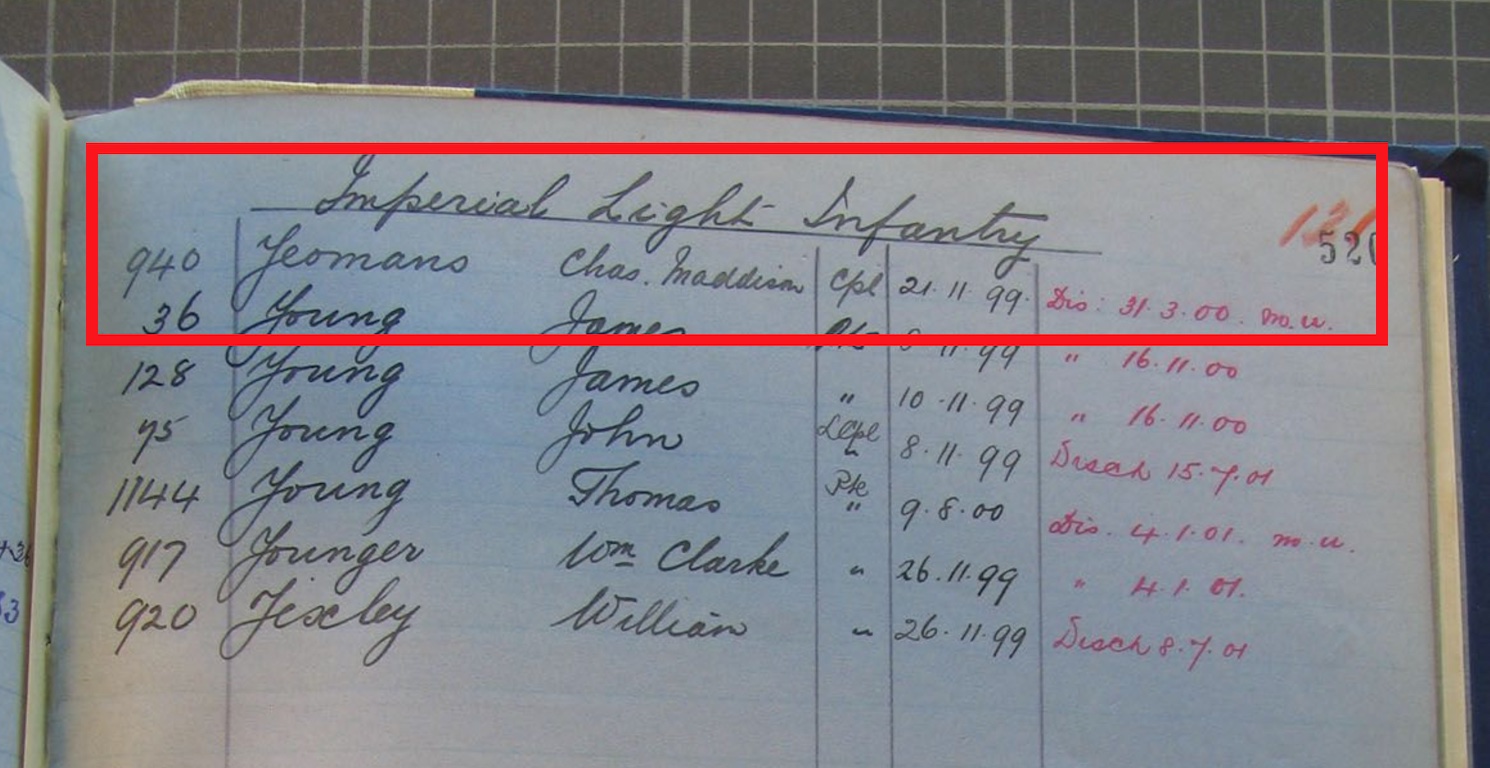 Imperial Light Infantry
131
520
940 Yeomans Chas. Maddison Cpl 21.11.99. Dis: 31.3.00. m.u.
36 Young James Pte 11.99 " 16.11.00
128 Young James " 10.11.99 " 16.11.00
75 Young John LCpl " 8.11.99 Disch 15.7.01
1144 Young Thomas Pte " 9.8.00 Dis. 4.1.01. m.u.
917 Younger Wm Clarke " 26.11.99 " 4.1.01.
920 Yexley William " 26.11.99 Disch 8.7.01